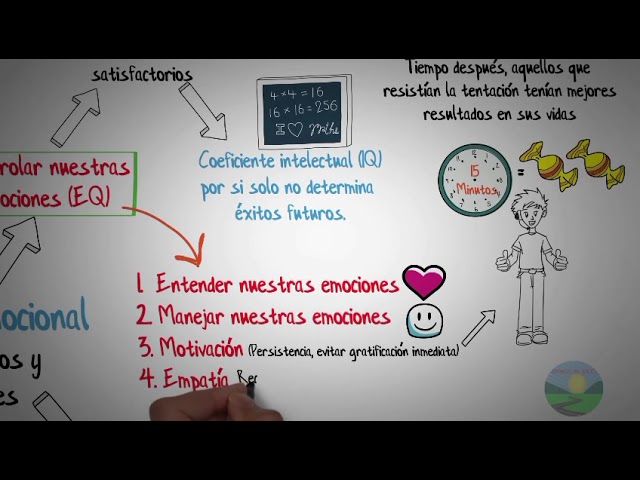 satisfactorios
Tiempo después, aquellos que
resistían la tentación tenían mejores
resultados en sus vidas
4×4=16
16×16=256
I
Coeficiente intelectual (IQ)
por si solo no determina
éxitos futuros.
15
Minutos
=
rolar nuestras
ociones (E.Q)
1. Entender nuestras emociones
2. Manejar nuestras emociones
3. Motivación (Persistencia, evitar gratificación inmediata)
4. Empatía Rec
ocional
os y
es